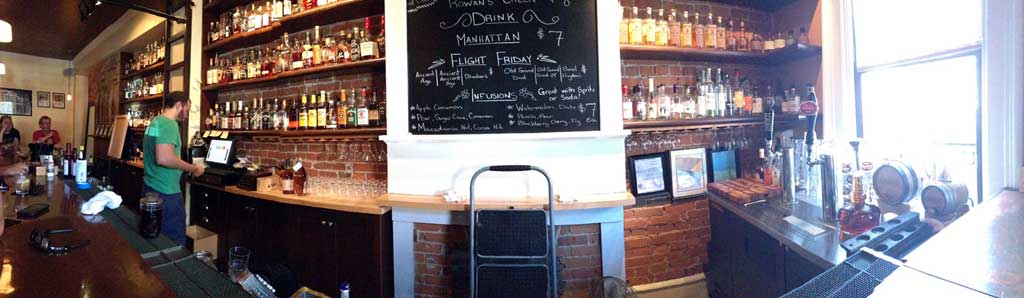 Rowan's Creek
Drink
Manhattan $7
Flight Friday
Ancient Age | Ancient Ancient Age | Blanton's
Old Grand Dad | Old Grand Dad | Basil Hayden
Infusions Great with Sprite or Soda!
* Apple Cinnamon
* Pear, Sugar Cane, Cinnamon
* Macadamia Nut, Cocoa Nib
* Watermelon, Date
* Peach, Pear
* Blackberry, Cherry, Fig
$7 Ea